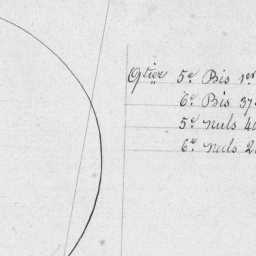 Qtier 5e Bis 1er
6e Bis 37
5e nuls 4
6e nuls 2